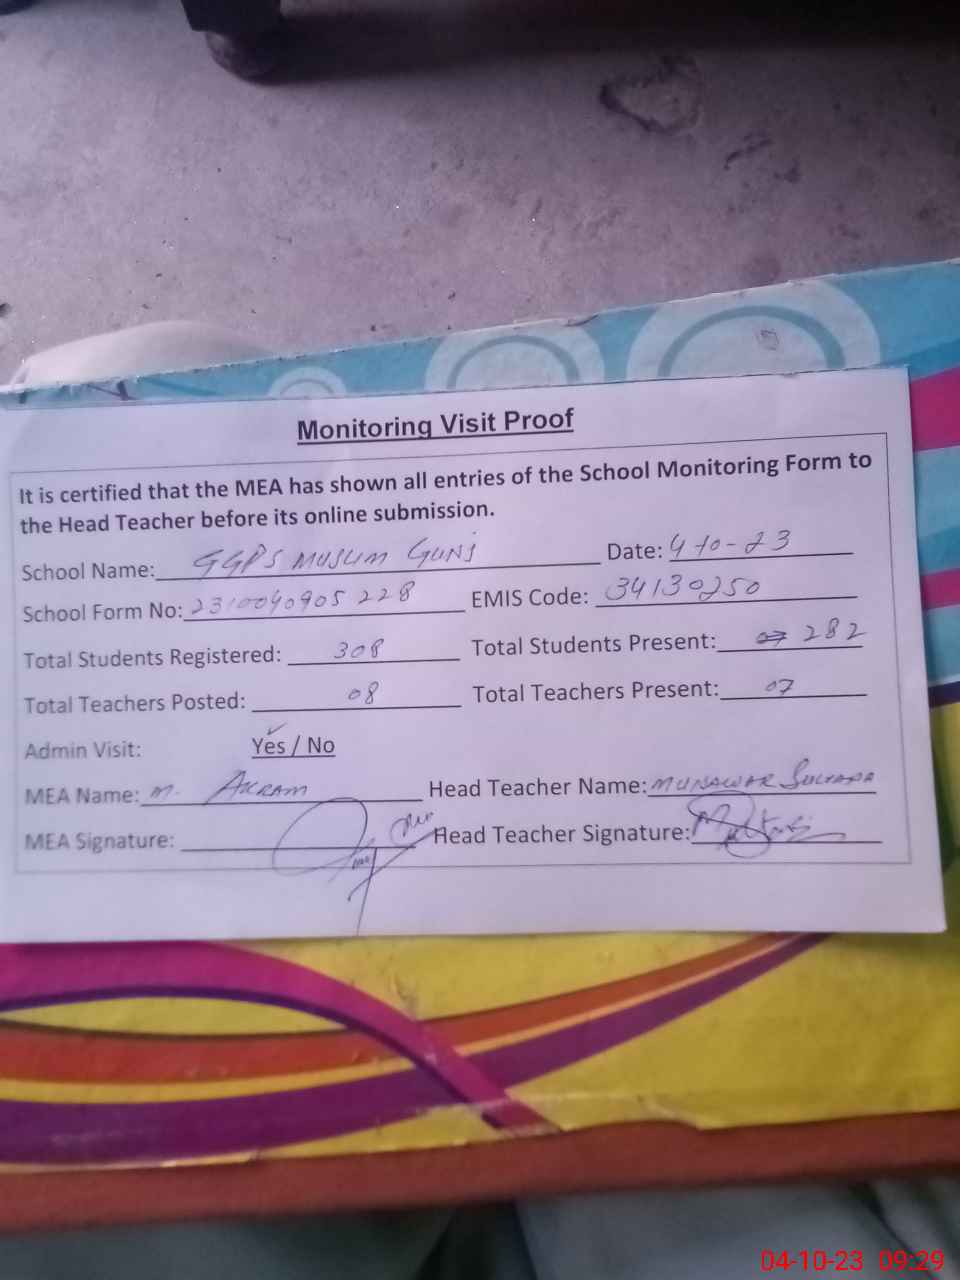 Monitoring Visit Proof
It is certified that the MEA has shown all entries of the School Monitoring Form to
the Head Teacher before its online submission.
School Name: GGPS MUSLIM GUNJ Date: 4-10-23
School Form No: 2310040905228 EMIS Code: 34130250
Total Students Registered: 308 Total Students Present: 282
Total Teachers Posted: 08 Total Teachers Present: 07
Admin Visit: Yes / No
MEA Name: M. AKRAM Head Teacher Name: MUNAWAR SULTANA
MEA Signature: Head Teacher Signature:
04-10-23 09:29